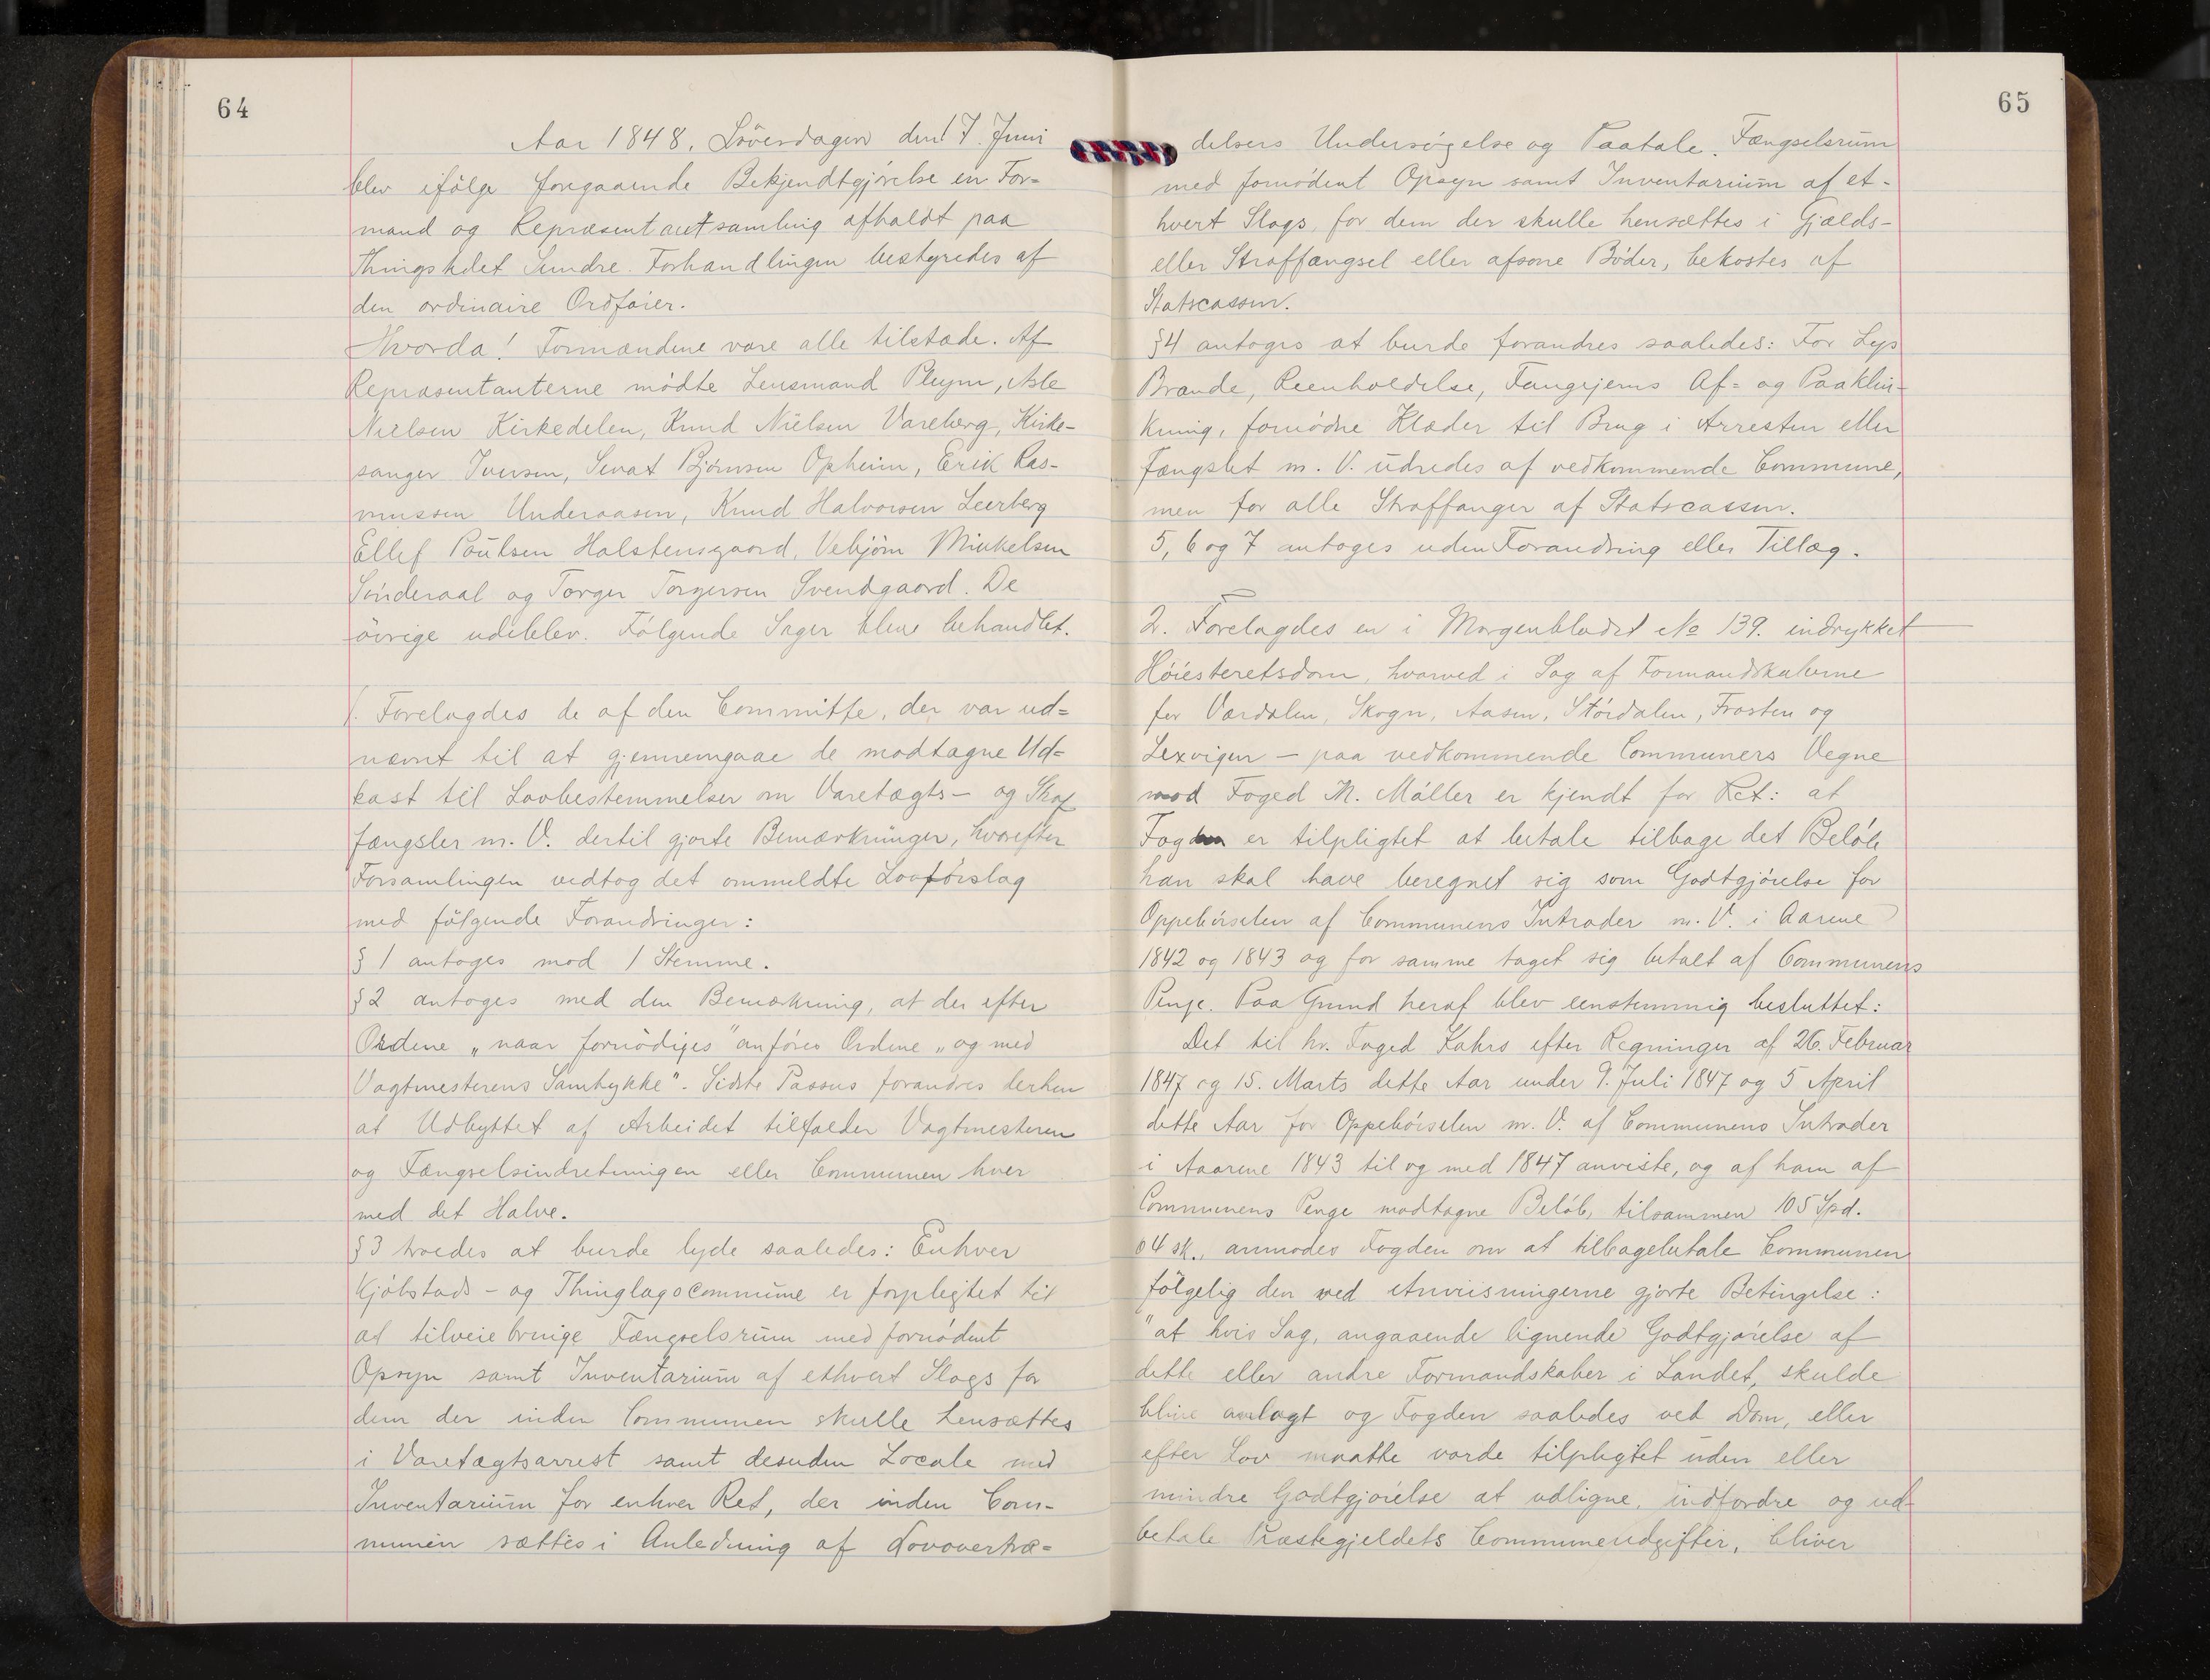 64
Aar 1848, Löverdagen den 17. Juni
blev ifölge foregaaende Bekjendtgjörelse en For=
mand og Repræsentantsamling afholdt paa
Thingstedet Sundre. Forhandlingen bestyredes af
den ordinaire Ordförer.
Hvorda! Formændene vare alle tilstæde. Af
Repræsentanterne mödte Lensmand Pleym, Asle
Nielsen Kirkedelen, Knud Nielsen Vareberg, Kirke-
sanger Iversen, Sevat Björnsen Opheim, Erik Ras-
mussen Underaasen, Knud Halvorsen Leerberg
Ellef Poulsen Halstensgaard, Vebjörn Mikkelsen
Sönderaal og Torger Torgersen Svendgaard. De
övrige udeblev. Fölgende Sager bleve behandlet.
1. Forelagdes de af den Committe, der var ud=
nævnt til at gjennemgaae de modtagne Ud=
kast til Lovbestemmelser om Varetægts- og Straf
fængsler m. V. dertil gjorte Bemærkninger, hvorefter
Forsamlingen vedtog det ommeldte Lovforslag
med fölgende Forandringer:
§ 1 antoges mod 1 Stemme.
§ 2 antoges med den Bemærkning, at der efter
Ordene „naar fornödiges" anföres Ordene „og med
Vagtmesterens Samtykke". Sidste Passus forandres derhen
at Udbyttet af Arbeidet tilfalder Vagtmesteren
og Fængselsindretningen eller Communen hver
med det Halve.
§ 3 troedes at burde lyde saaledes: Enhver
Kjöbstads- og Thinglagscommune er forpligtet til
at tilveiebringe Fængselsrum med fornödent
Opsyn samt Inventarium af ethvert Slags for
dem der inden Communen skulle hensættes
i Varetægtsarrest samt desuden Locale med
Inventarium for enhver Ret, der inden Com-
munen sættes i Anledning af Lovovertræ=
65
delsers Undersögelse og Paatale. Fængselsrum
med fornödent Opsyn samt Inventarium af et-
hvert Slags for dem der skulle hensættes i Gjælds-
eller Straffængsel eller afsone Böder, bekostes af
Statscassen.
§ 4 antoges at burde forandres saaledes: For Lys
Brænde, Reenholdelse, Fangejerns Af= og Paaklin-
kning, fornödne Klæder til Brug i Arresten eller
Fængslet m. V. udredes af vedkommende Commune,
men for alle Straffanger af Statscassen.
5, 6 og 7 antoges uden Forandring eller Tillæg.
2. Forelagdes en i Morgenbladet No 139. indrykket
Höiesteretsdom, hvorved i Sag af Formandskaberne
for Værdalen, Skogn, Aasen, Stördalen, Frosten og
Lexvigen - paa vedkommende Communers Vegne
mod Foged M. Möller er kjendt for Ret: at
Fogden er tilpligtet at betale tilbage det Belöb
han skal have beregnet sig som Godtgjörelse for
Oppebörselen af Communens Intrader m. V. i Aarene
1842 og 1843 og for samme taget sig betalt af Communens
Penge. Paa Grund heraf blev eenstemmig besluttet:
Det til hr. Foged Kahrs efter Regninger af 26. Februar
1847 og 15. Marts dette Aar under 9. Juli 1847 og 5 April
dette Aar for Oppebörselen m. V. af Communens Intrader
i Aaarene 1843 til og med 1847 anviste, og af ham af
Communens Penge modtagne Belöb, tilsammen 105 Spd.
64 sk., anmodes Fogden om at tilbagebetale Communen
fölgelig den ved Anviisningerne gjorte Betingelse:
"at hvis Sag, angaaende lignende Godtgjörelse af
dette eller andre Formandskaber i Landet, skulde
blive anlagt og Fogden saaledes ved Dom, eller
efter Lov maatte vorde tilpligtet uden eller
mindre Godtgjörelse at udligne, indfordre og ud-
betale Præstegjeldets Communeudgifter, bliver